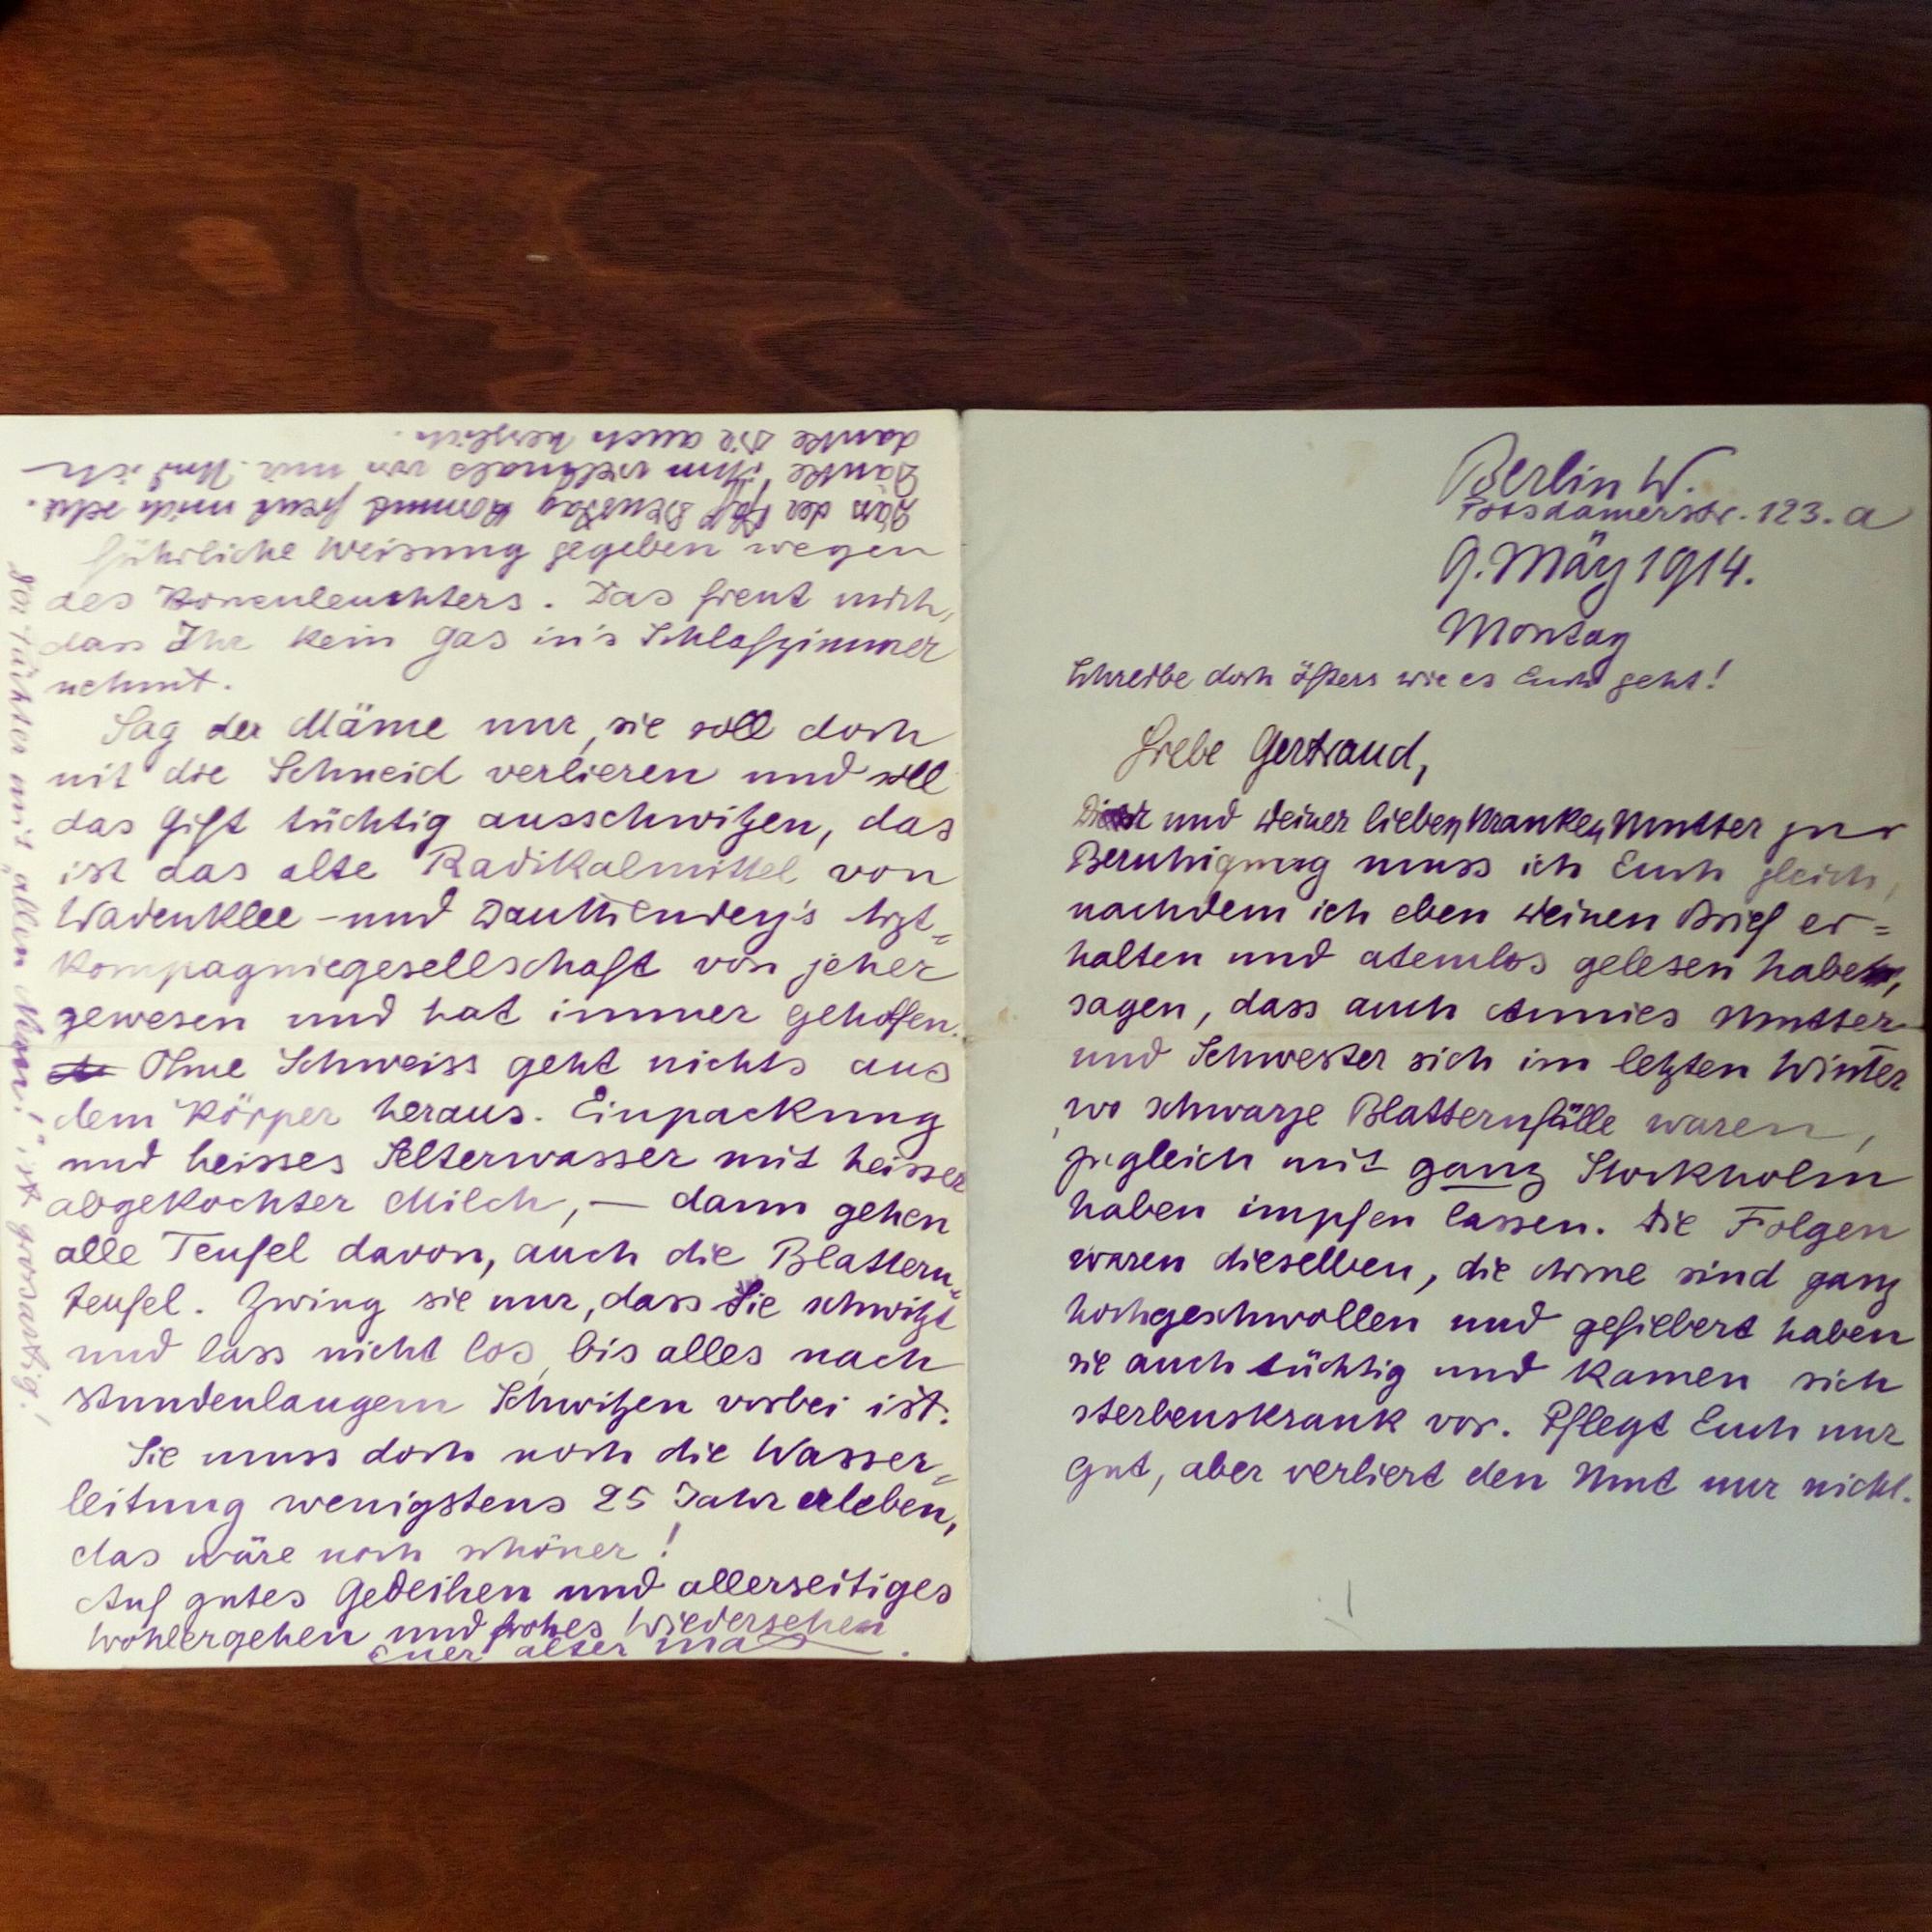 Berlin W.
Potsdamerstr. 123. a
9. März 1914.
Montag
Schreibe doch öfters wie es Euch geht!
Liebe Gertraud,
Dir und Deiner lieben kranken Mutter zur
Beruhigung muss ich Euch gleich,
nachdem ich eben Deinen Brief er=
halten und atemlos gelesen habe,
sagen, dass auch Annies Mutter
und Schwester sich im letzten Winter
wo schwarze Blatternfälle waren,
zugleich mit ganz Stockholm
haben impfen lassen. Die Folgen
waren dieselben, die Arme sind ganz
hochgeschwollen und gefiebert haben
sie auch tüchtig und kamen sich
sterbenskrank vor. Pflegt Euch nur
gut, aber verliert den Mut nur nicht.
führliche Weisung gegeben wegen
des Kronenleuchters. Das freut mich,
dass Ihr kein Gas in's Schlafzimmer
nehmt.
Sag der Mäme nur, sie soll doch
nit die Schneid verlieren und soll
das Gift tüchtig ausschwitzen, das
ist das alte Radikalmittel von
Wadenklee - und Dauthendey's Arzt=
kompagniegesellschaft von jeher
gewesen und hat immer geholfen.
Ohne Schweiss geht nichts aus
dem Körper heraus. Einpackung
und heisses Selterwasser mit heisser
abgekochter Milch, — dann gehen
alle Teufel davon, auch die Blattern=
teufel. Zwing sie nur, dass Sie schwitzt
und lass nicht los, bis alles nach
stundenlangem Schwitzen vorbei ist.
Sie muss doch noch die Wasser=
leitung wenigstens 25 Jahr erleben,
das wäre noch schöner!
Auf gutes Gedeihen und allerseitiges
Wohlergehen und frohes Wiedersehen
Euer alter Max.
Dass der Dienstag kommt freut mich sehr.
Danke ihm vielmals von mir. Und ich
danke Dir auch herzlich.
Der Pächter mit „allen Kom!“ ist grossartig!